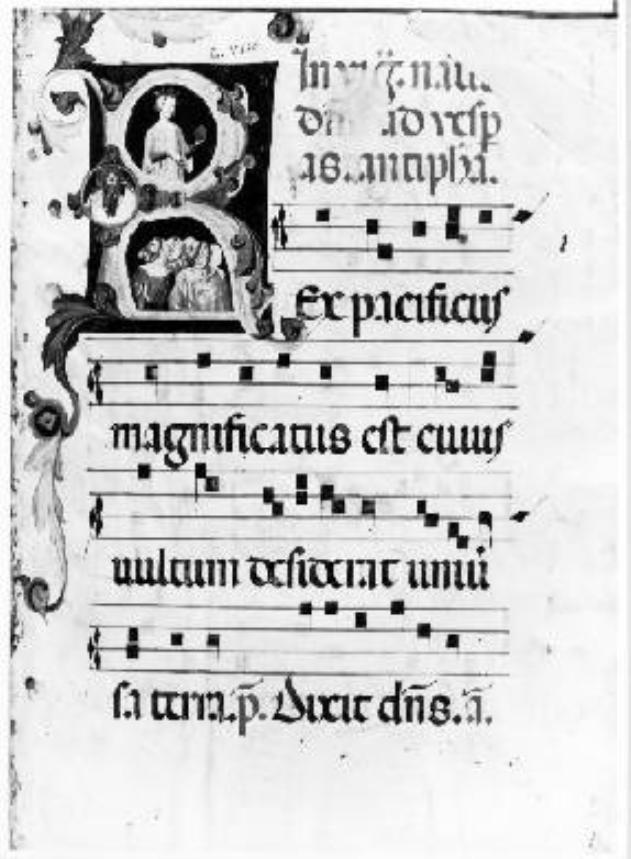 In vig̃. nati
dñi ad vesp
as. antipha.
Rex pacificus
magnificatus est cuius
uultum desiderat uniu
sa terra. p̄. Dixit dn̄s. ā.